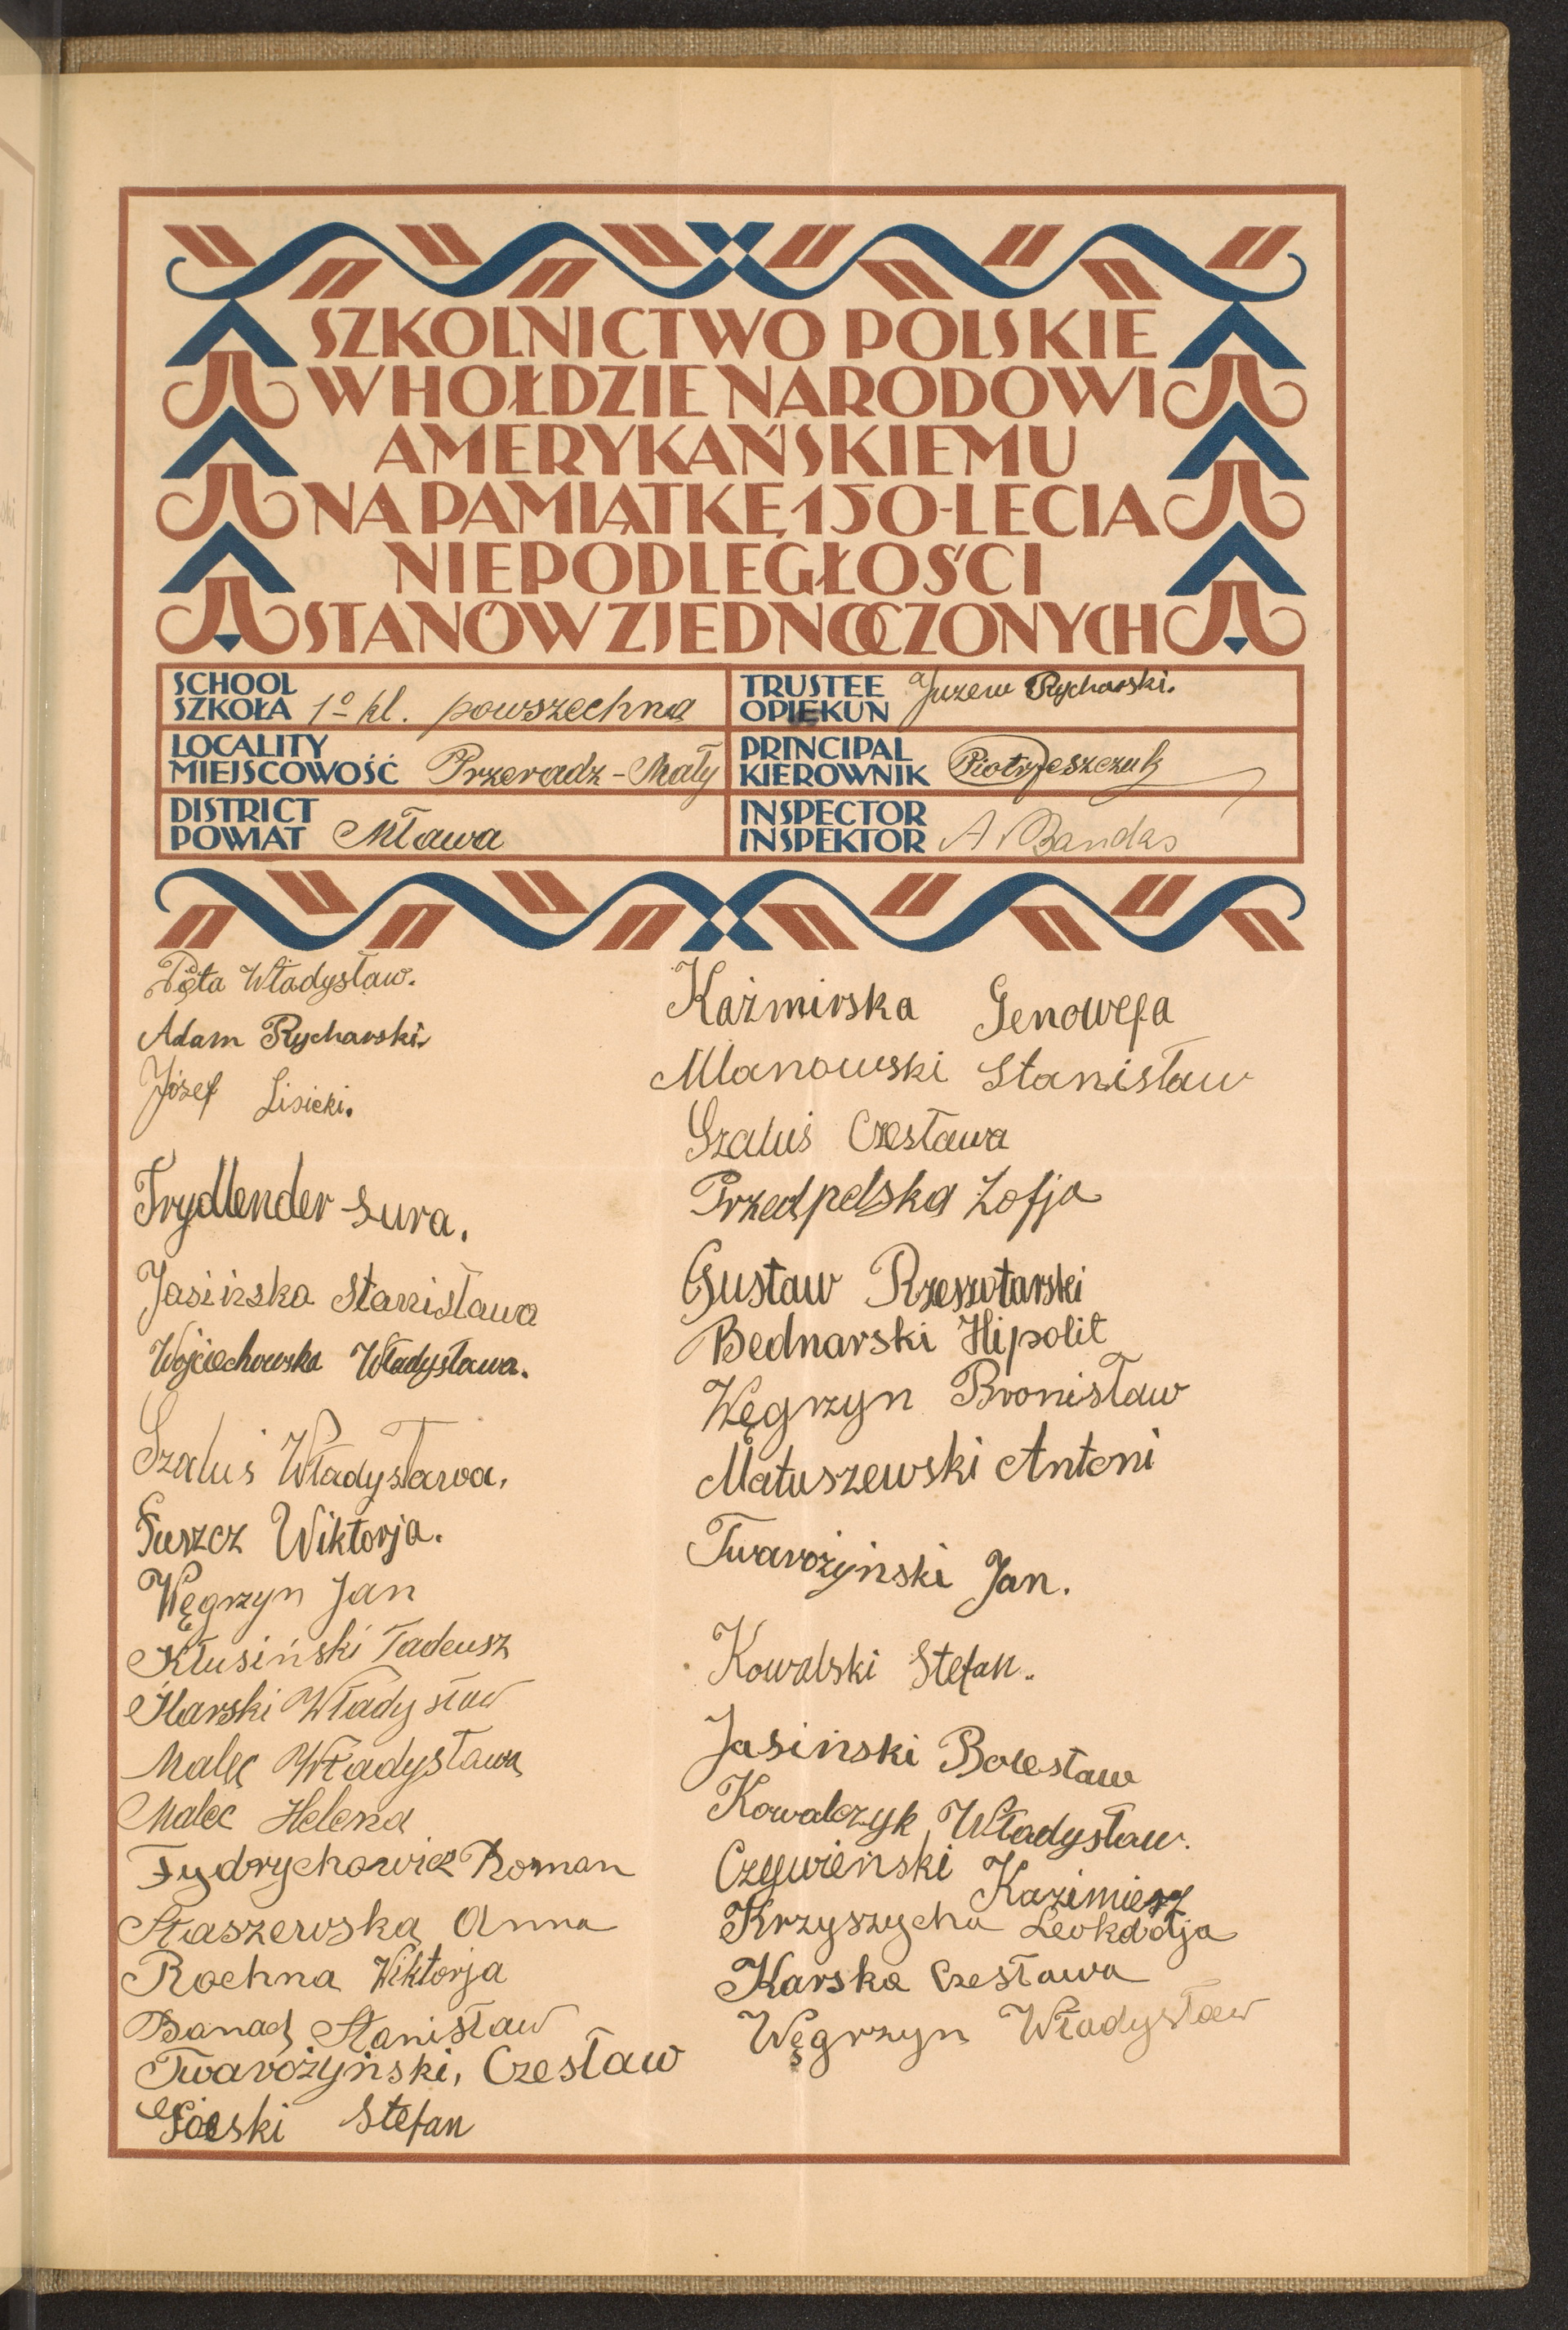 SZKOLNICTWO POLSKIE
W HOŁDZIE NARODOWI
AMERYKAŃSKIEMU
NA PAMIĄTKĘ 150-LECIA
NIEPODLEGŁOŚCI
STANÓW ZJEDNOCZONYCH
SCHOOL
SZKOŁA 1º kl. powszechna
LOCALITY
MIEJSCOWOŚĆ Przeradz-Mały
DISTRICT
POWIAT Mława
TRUSTEE
OPIEKUN Juzew Rycharski.
PRINCIPAL
KIEROWNIK Piotr Jeszczuk
INSPECTOR
INSPEKTOR A. Bandas
Pęta Władysław.
Adam Rycharski.
Józef Lisicki.
Frydlender Sura.
Jasińska Stanisława
Wojciechowska Władysława.
Szaluś Władysława.
Puszcz Wiktorja.
Węgrzyn Jan
Kłusiński Tadeusz
Ilarski Władysław
Malec Władysława
Malec Helena
Fydrychowicz Roman
Staszewska Anna
Rochna Wiktorja
Banach Stanisław
Twarożyński, Czesław
Górski Stefan
Kaźmirska Genowefa
Mlanowski Stanisław
Szaluś Czesława
Przedpelska Zofja
Gustaw Rzeszotarski
Bednarski Hipolit
Węgrzyn Bronisław
Matuszewski Antoni
Twarożyński Jan.
Kowalski Stefan.
Jasiński Bolesław
Kowalczyk Władysław.
Czywieński Kazimierz
Krzyszycha Leokadja
Karska Czesława
Węgrzyn Władysław